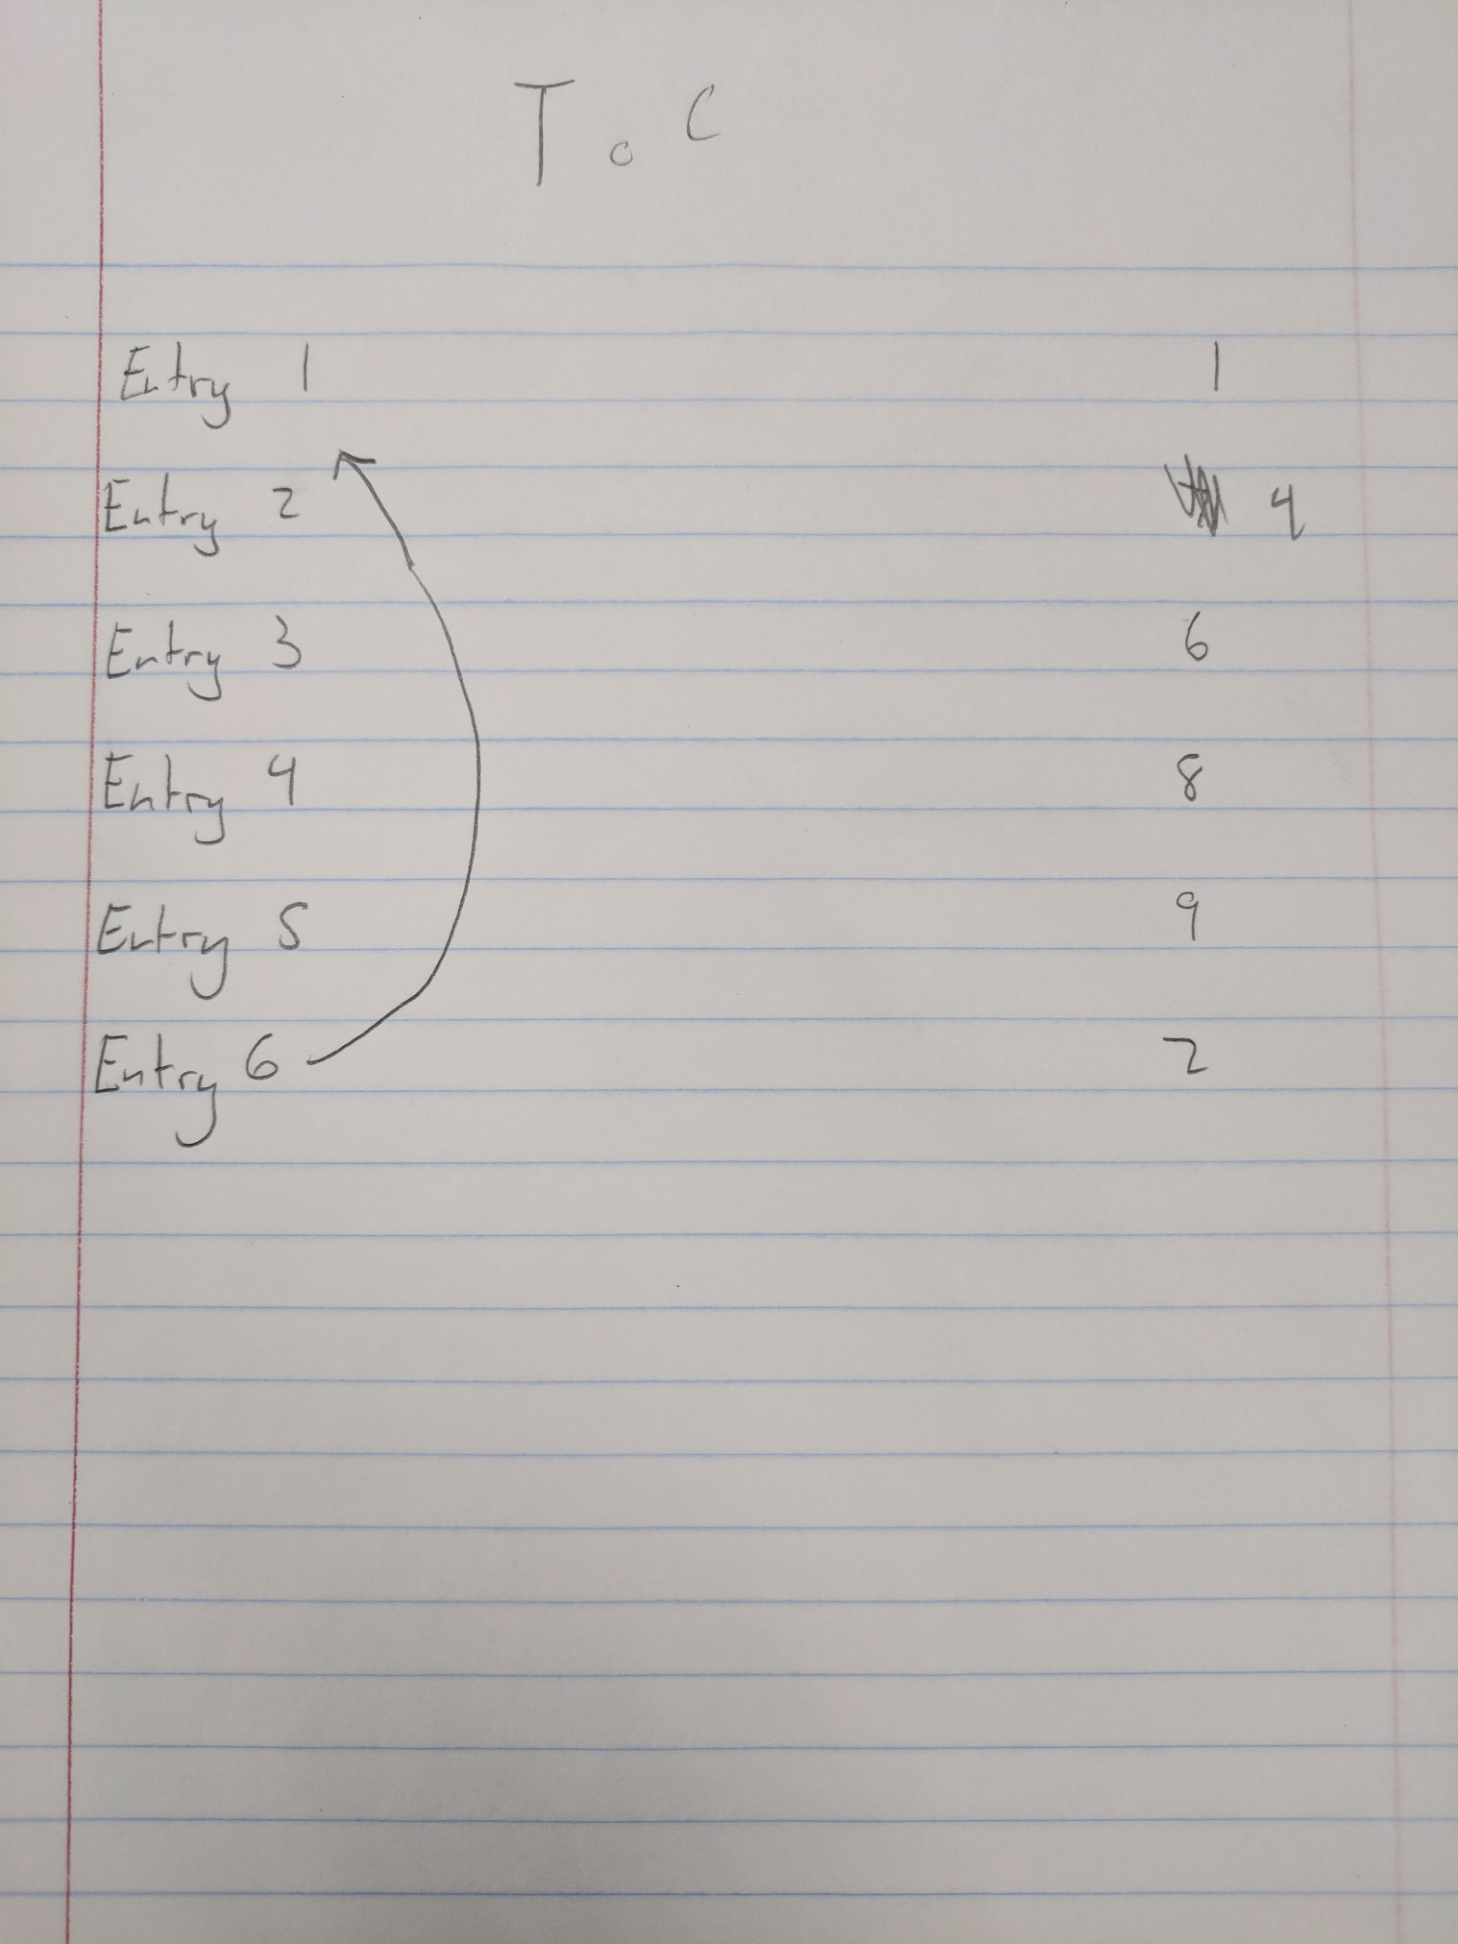 ToC
Entry 1 1
Entry 2 4
Entry 3 6
Entry 4 8
Entry 5 9
Entry 6 2